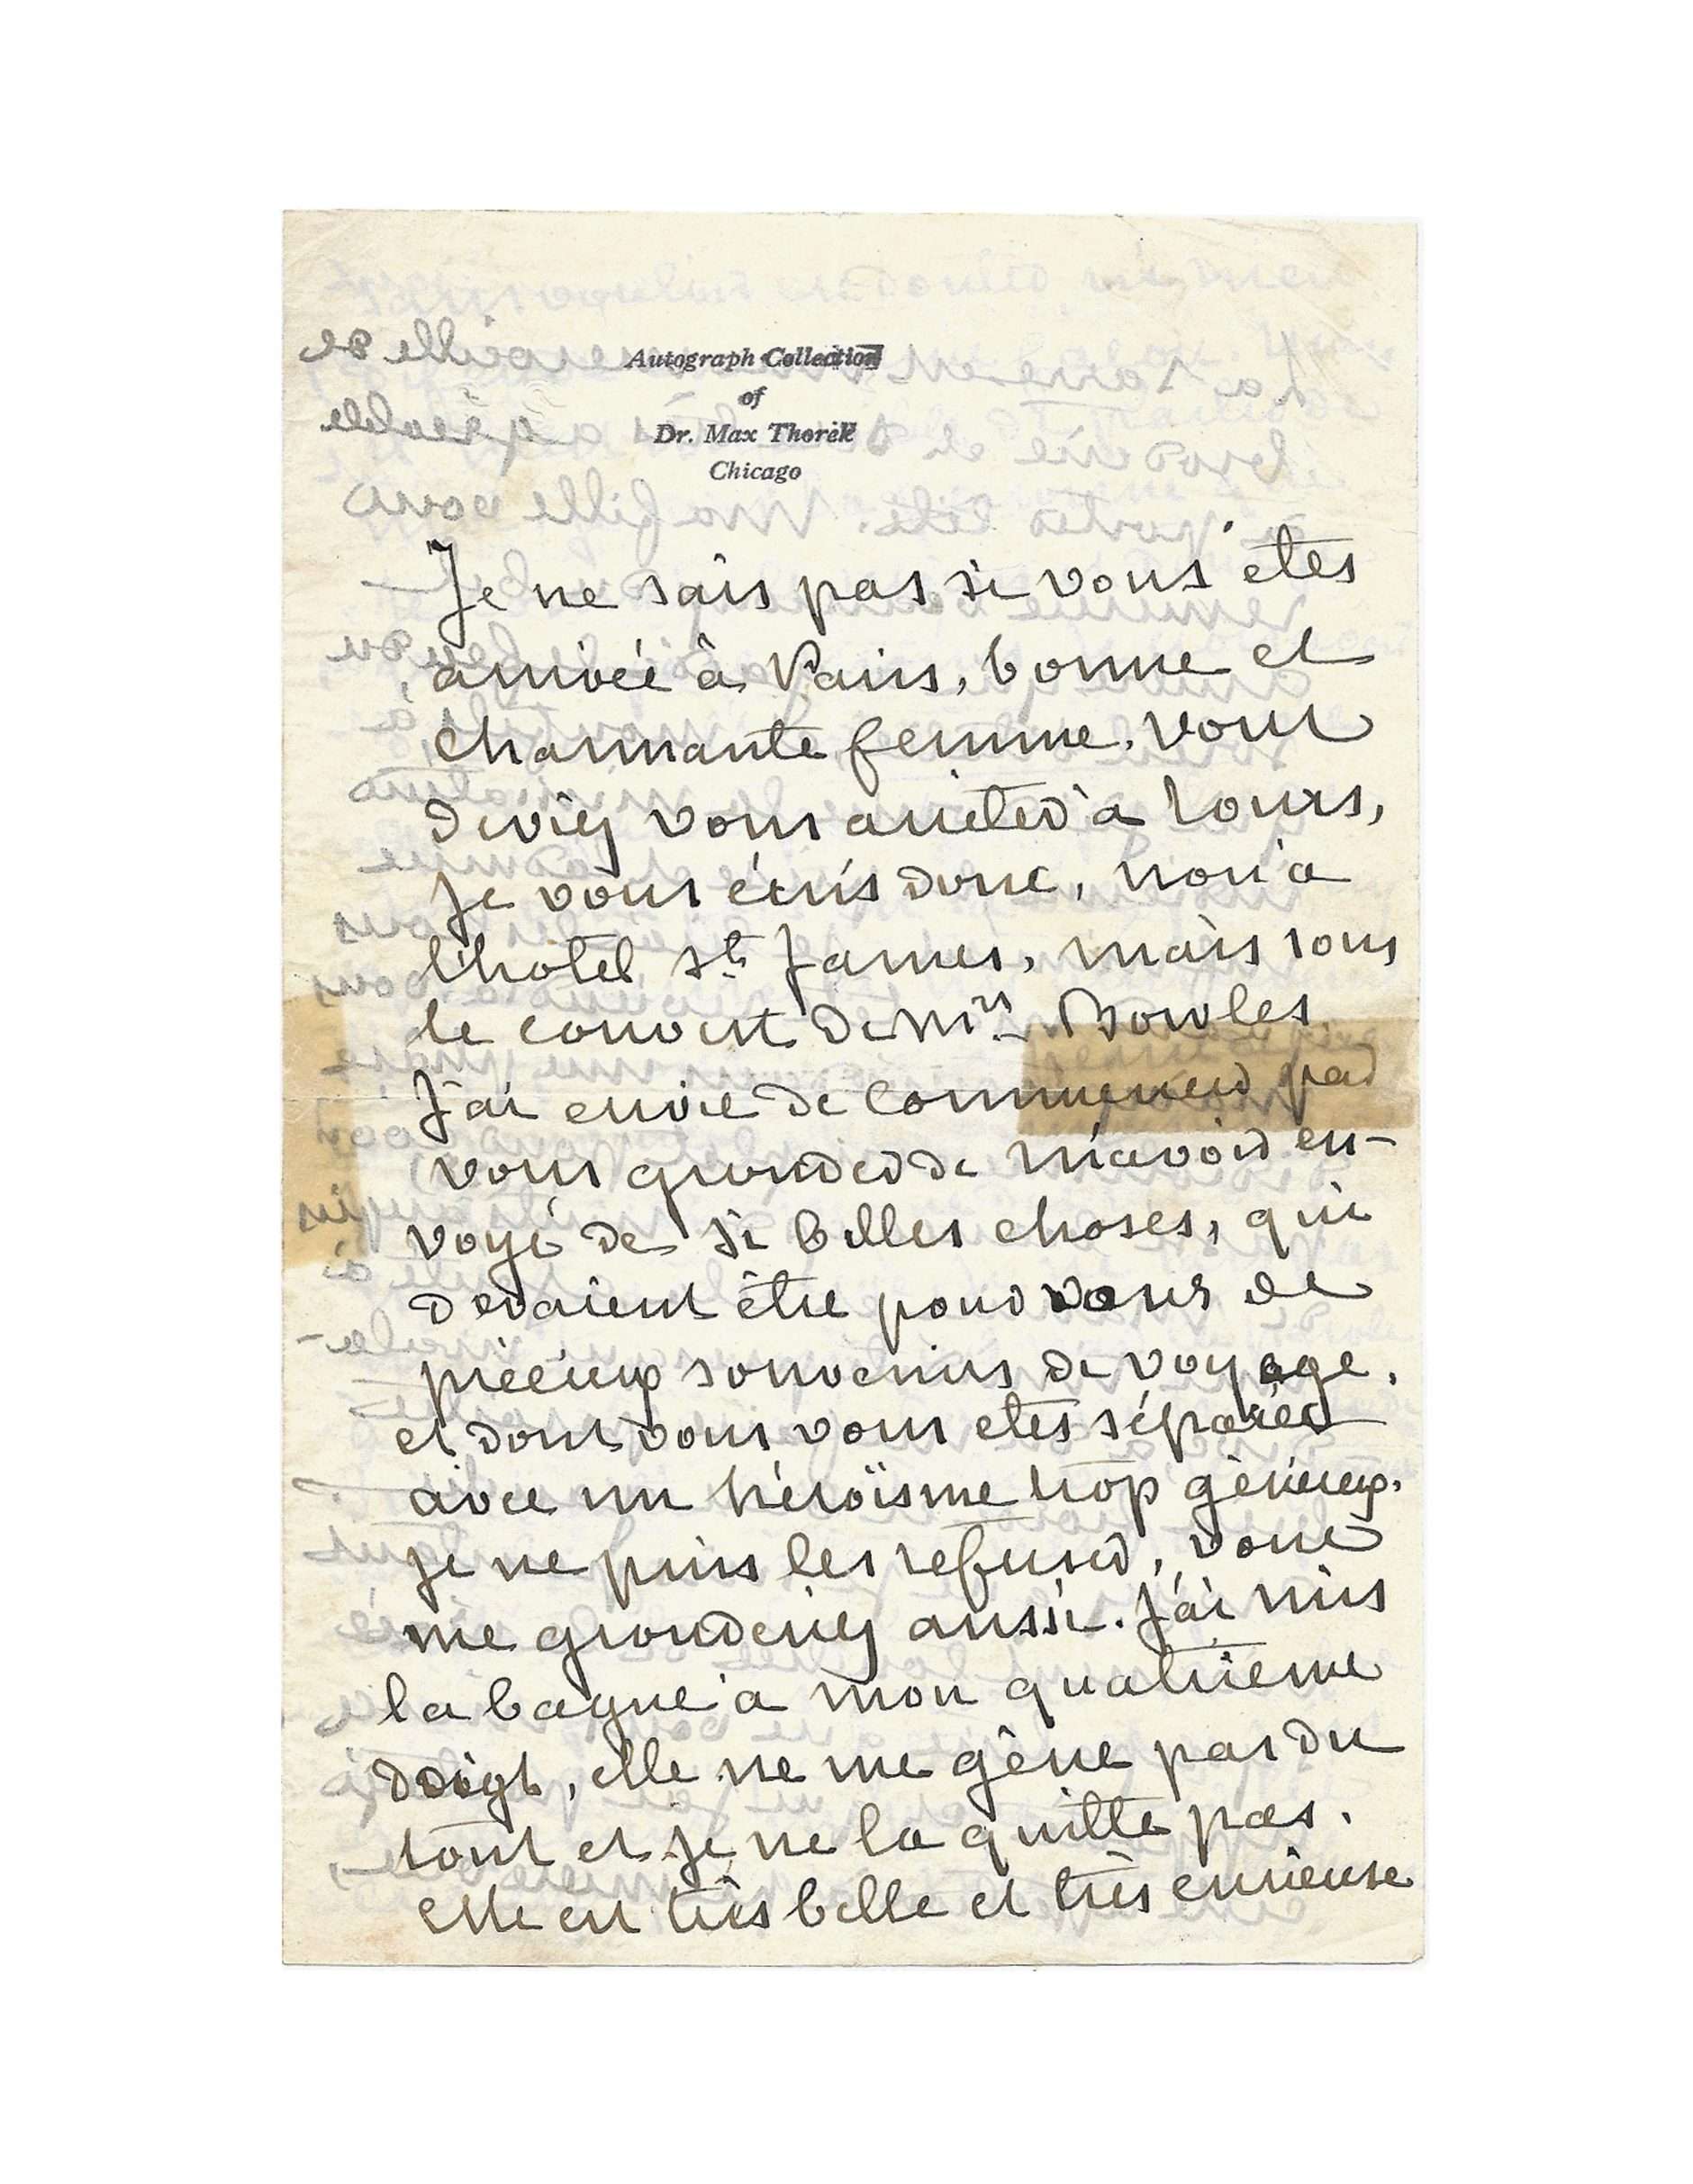 Autograph Collection
of
Dr. Max Thorek
Chicago
Je ne sais pas si vous êtes
arrivée à Paris, bonne et
charmante femme. Vous
deviez vous arrêter à Tours,
je vous écris donc, non à
l'hotel St James, mais sous
le couvert de Mrs Bowles
J'ai envie de commencer par
vous gronder de m'avoir en-
voyé de si belles choses, qui
devaient être pour vous de
précieux souvenirs de voyage.
et dont vous vous etes séparée
avec un héroïsme trop généreux.
je ne puis les refuser, vous
me gronderiez aussi. J'ai mis
la bague à mon quatrième
doigt, elle ne me gêne pas du
tout et je ne la quitte pas.
elle est très belle et très curieuse